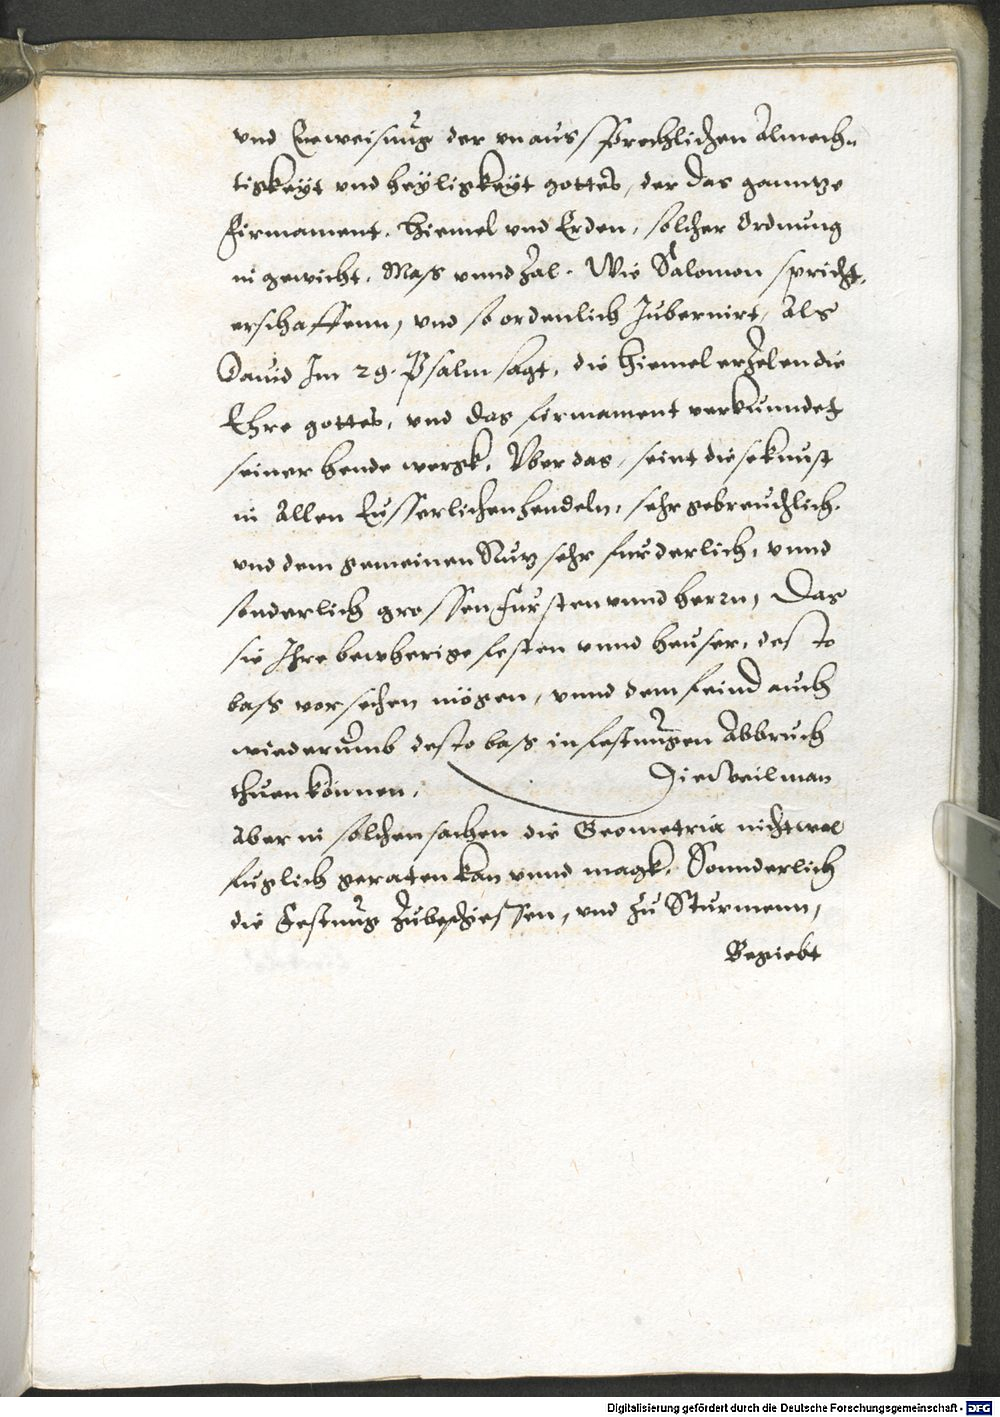 vnd Erweisung der vnaussprechlichen Almech-
tigkeyt vnd heyligkeyt gottes, der das ganntze
firmament, hiemel vnd Erden, solcher Ordnung
in gewicht, Mass vnnd Zal. Wie Salomon spricht,
erschaffenn, vnd so ordenlich Jubernirt, Als
Dauid Im 29. Psalm sagt, die hiemel erzelen die
Ehre gottes, vnd das firmament verkunndet
seiner hende wergk, Vber das, seint diese kunst
in Allen Eusserlichen hendeln, sehr gebreuchlich,
vnd dem gemeinen Nutz sehr furderlich, vnnd
sonderlich grossen Fursten vnnd herrn, Das
sie Ihre festen vnnd heuser, desto
bass vorsehen mögen, vnnd dem feind auch
wiederumb desto bass in festungen Abbruch
thuen können,
Dieweil man
Aber in solchen sachen die Geometria nicht wol
fuglich geraten kan vnnd magk, Sonnderlich
die Festung zubeschiessen, vnd zu Sturmenn,
Begiebt
Digitalisierung gefördert durch die Deutsche Forschungsgemeinschaft - DFG